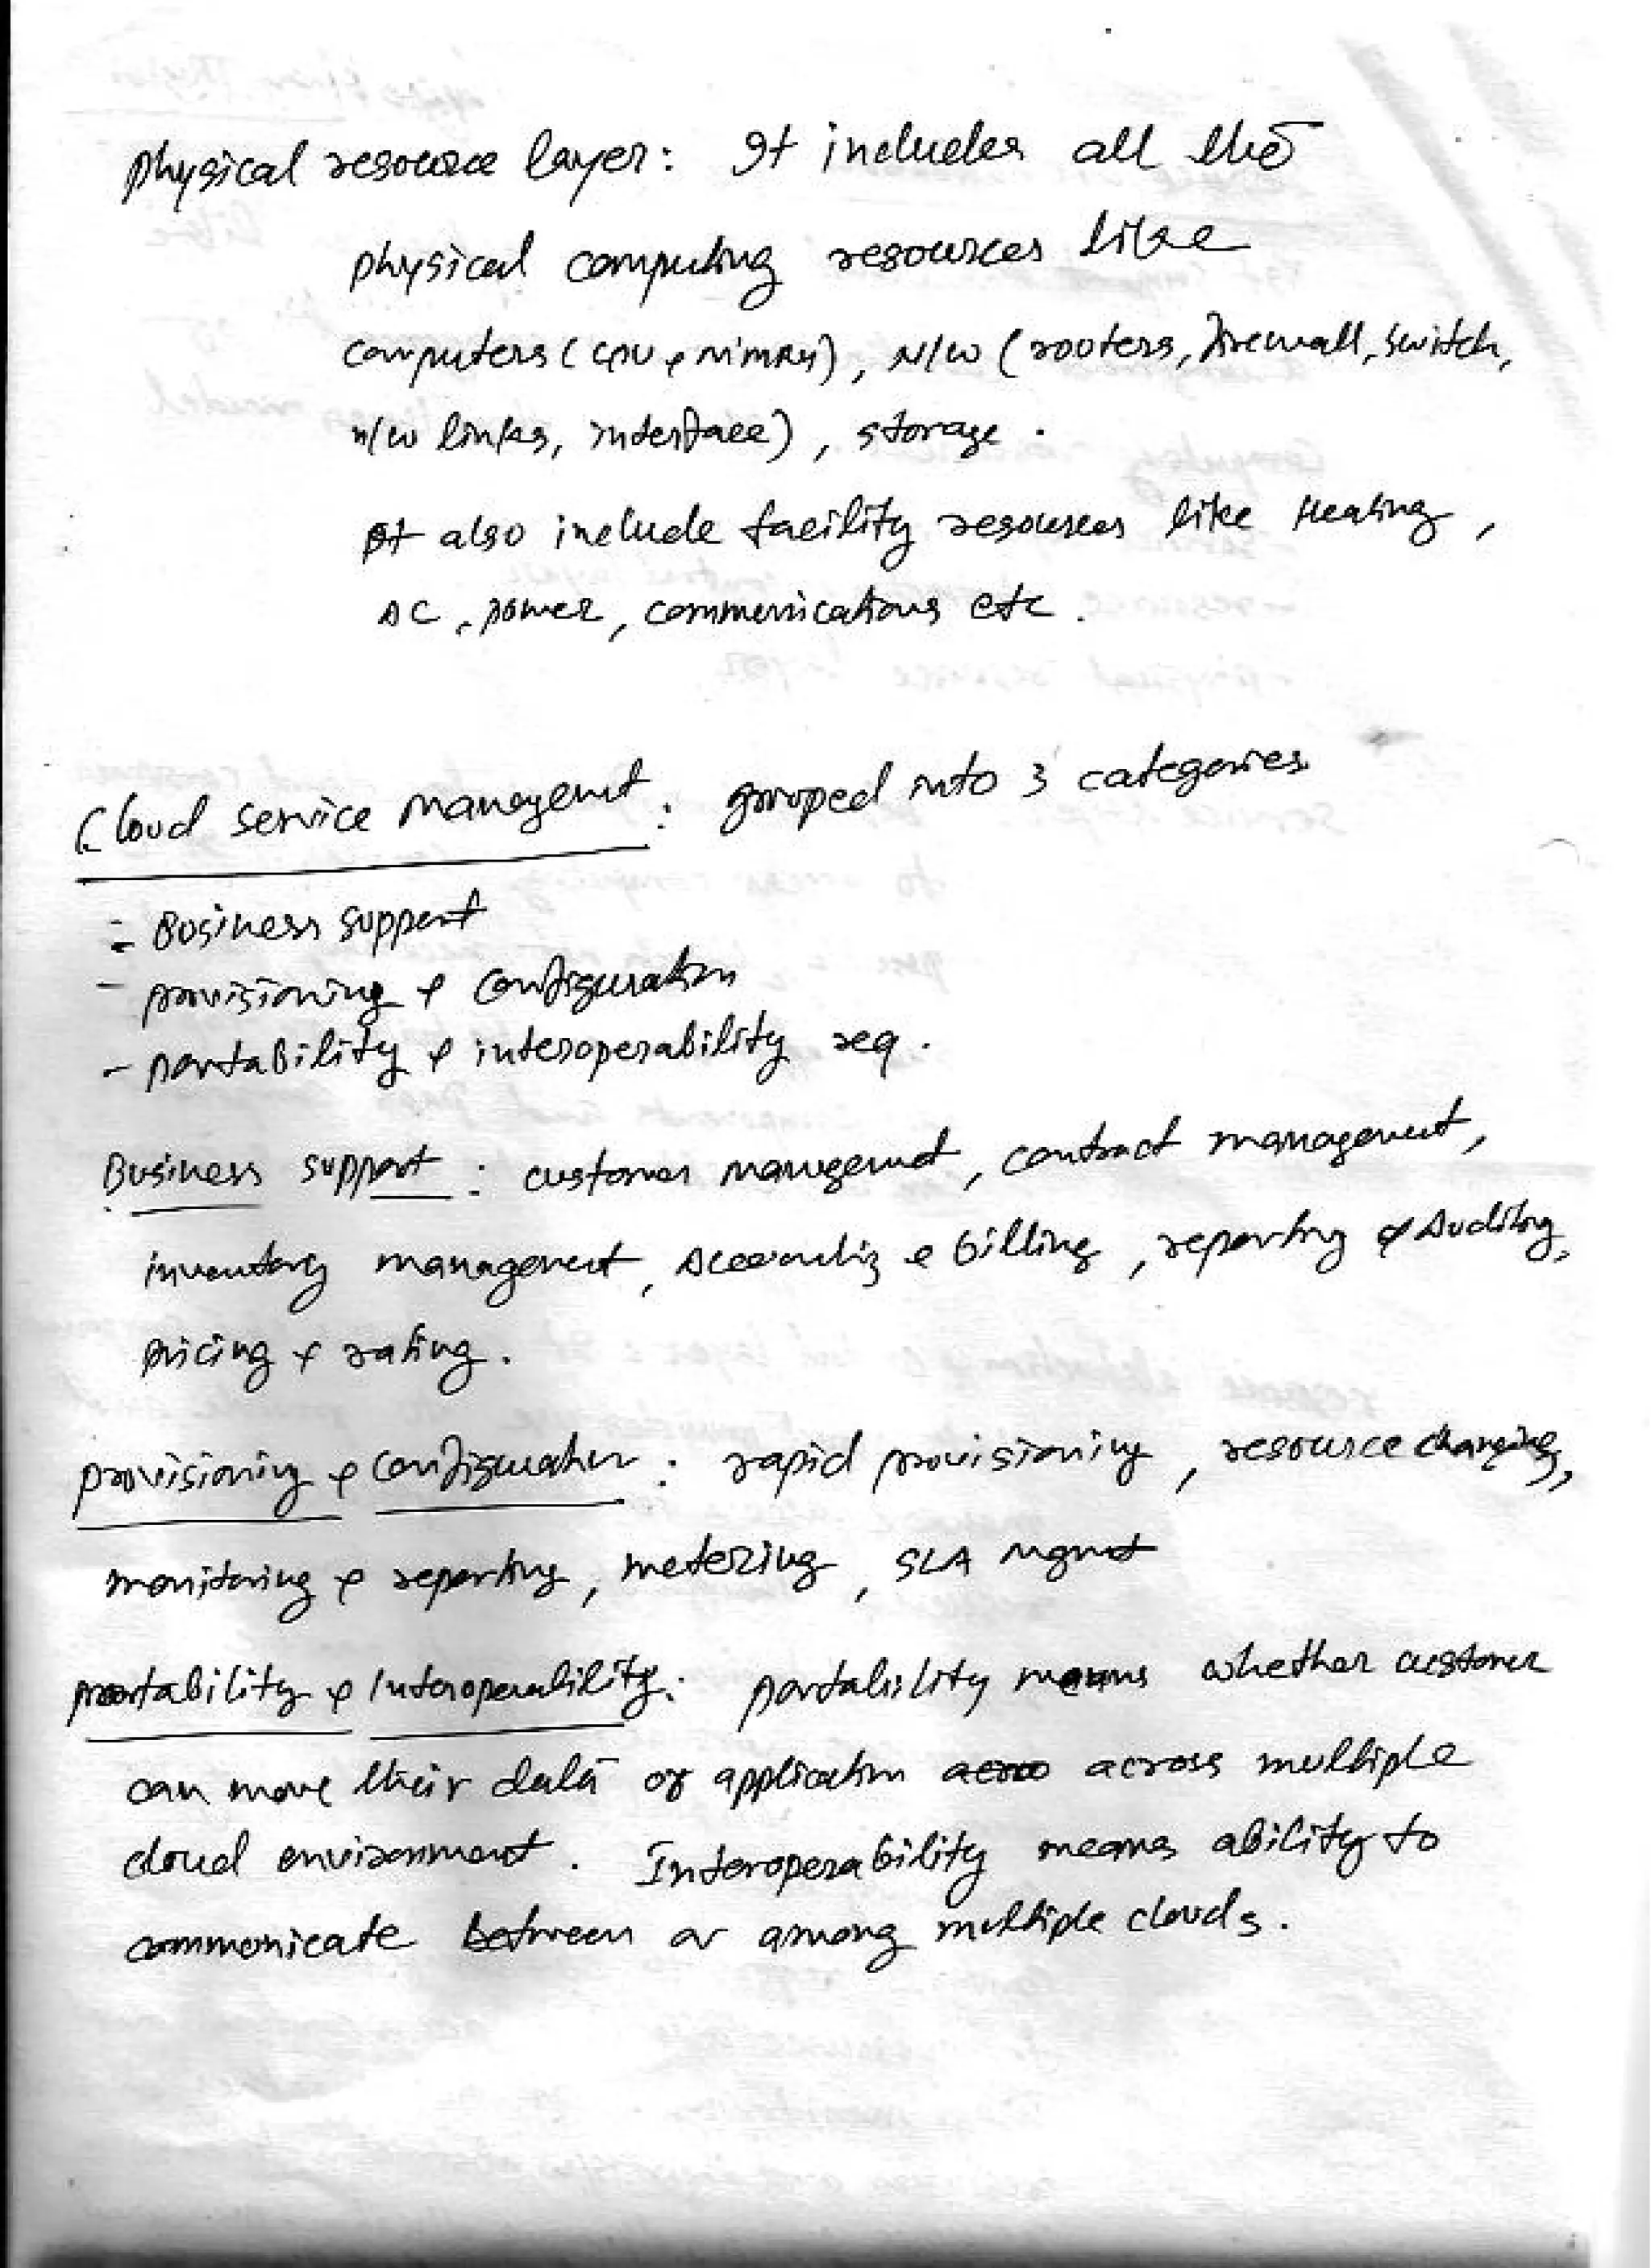 Physical resource layer: It includes all the
physical computing resources like
computers (CPU & M'MRY), N/W (rooters, Firewall, Switch,
n/w links, interface), storage.
It also include facility resources like Heating,
AC, power, communications etc.
Cloud service management: grouped into 3 categories
- Business support
- provisioning & configuration
- portability & interoperability req.
Business support: customer management, contract management,
inventory management, Accounting & billing, reporting & Auditing,
pricing & rating.
provisioning & configuration: rapid provisioning, resource changing,
monitoring & reporting, metering, SLA Mgmt
portability & Interoperability: portability means whether customer
can move their data or application across multiple
cloud environment. Interoperability means ability to
commonicate between or among multiple clouds.